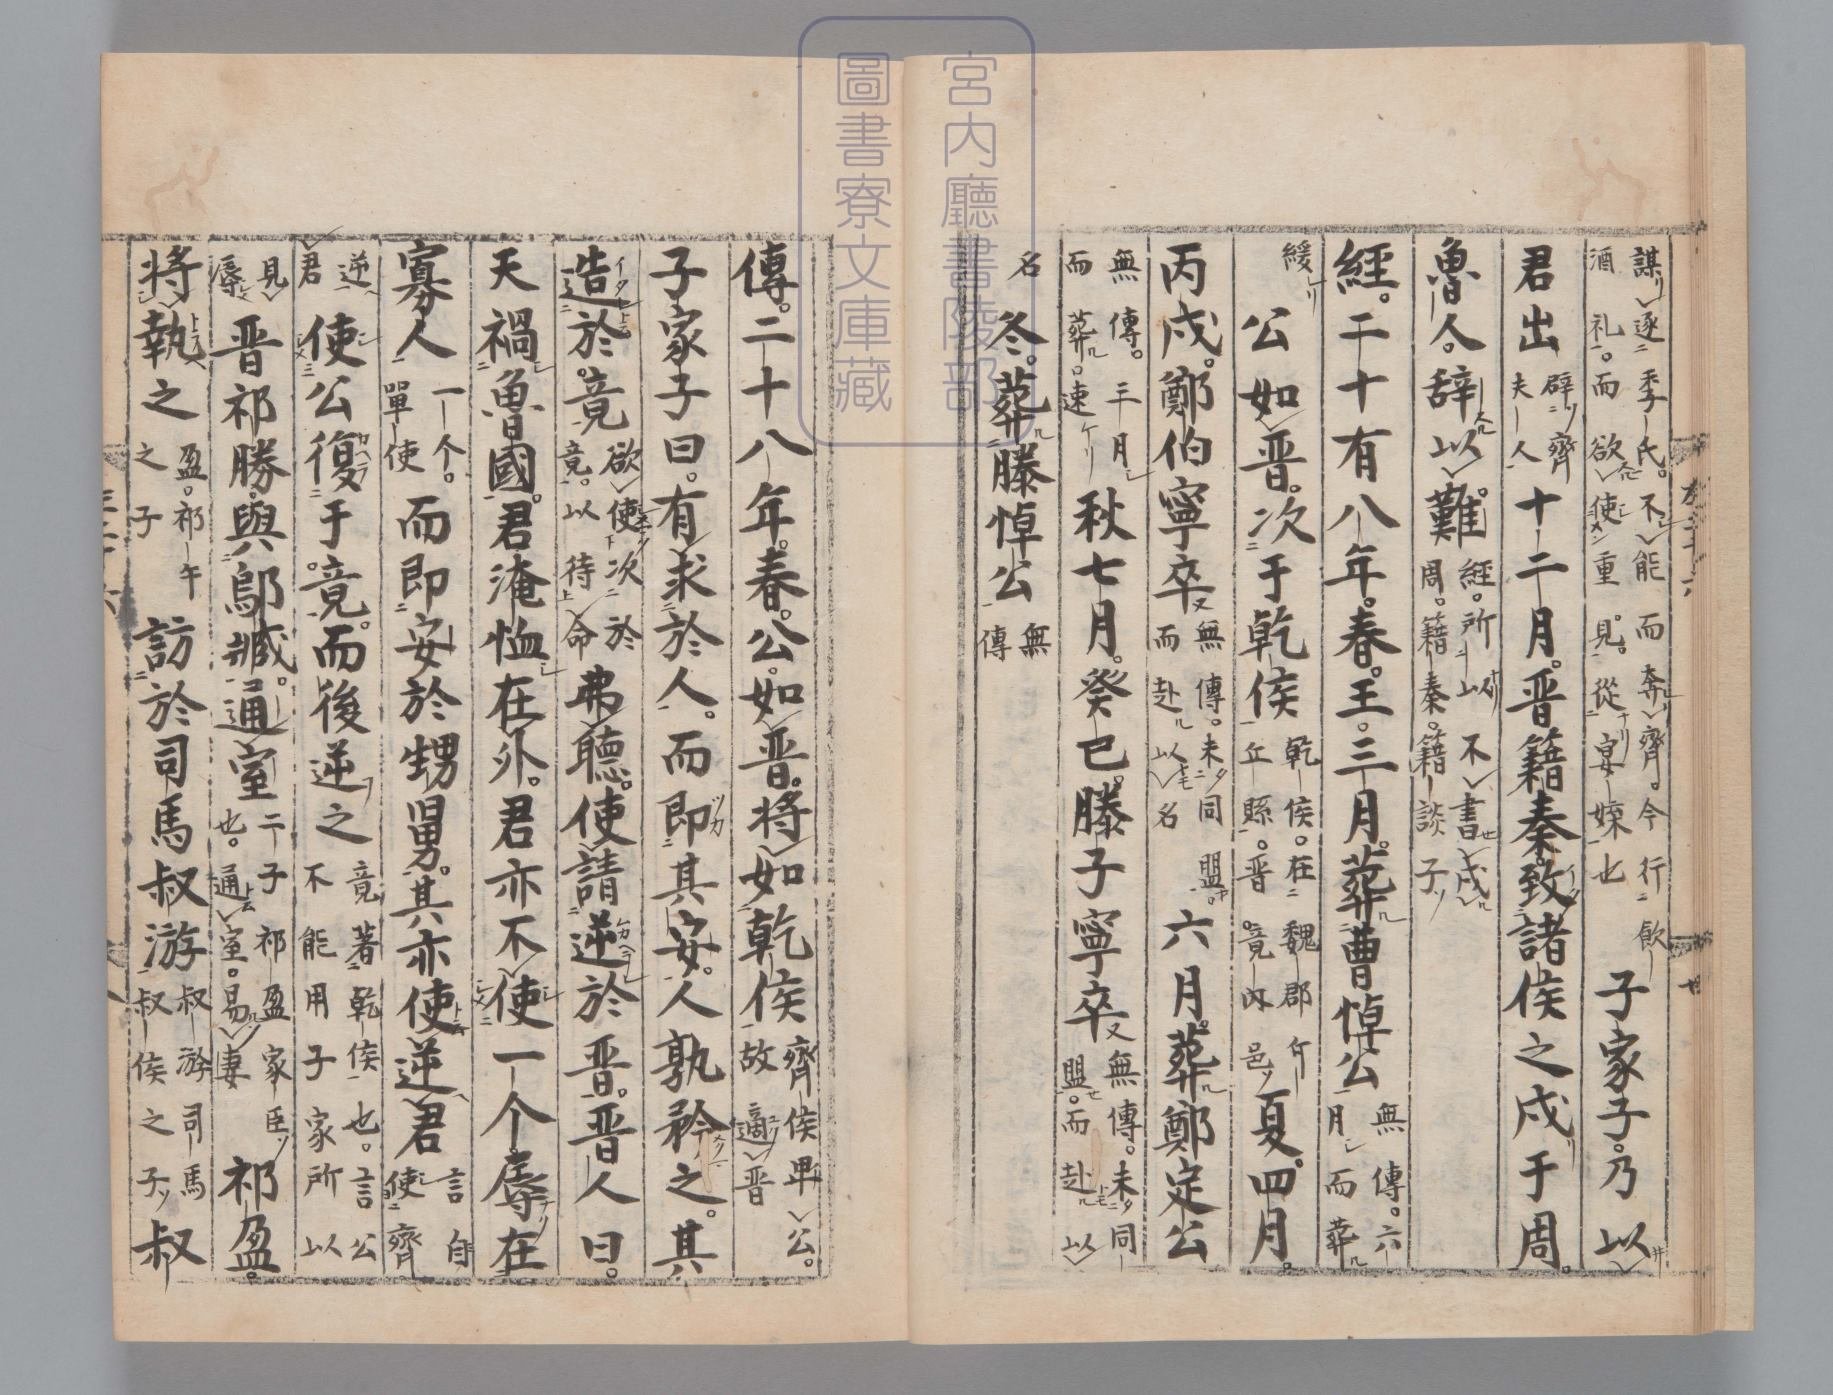 謀逐季氏不能而奔齊今行飲酒礼而欲使重見從宴媟也子家子乃以
君出辟齊夫人十二月晋籍秦致諸侯之戍于周
魯人辞以難經所以不書戍周籍秦籍談子
經二十有八年春王三月葬曹悼公無傳六月而葬
緩公如晋次于乾侯乾侯在魏郡斥丘縣晋竟内邑夏四月
丙戍鄭伯寧卒無傳未同盟而赴以名六月葬鄭定公
無傳三月而葬速秋七月癸巳滕子寧卒無傳未同盟而赴以
名冬葬滕悼公無傳
傳二十八年春公如晋将如乾侯齊侯卑公故適晋
子家子曰有求於人而即其安人孰矜之其
造於竟欲使次於竟以待命弗聴使請逆於晋晋人曰
天禍魯國君淹恤在外君亦不使一个辱在
寡人一个單使而即安於甥舅其亦使逆君言自使齊
逆君使公復于竟而後逆之竟著乾侯也言公不能用子家所以
見辱晋祁勝與鄔臧通室二子祁盈家臣也通室易妻祁盈
将執之盈祁午之子訪於司馬叔游叔游司馬叔侯之子叔
宮内廳書陵部
圖書寮文庫藏